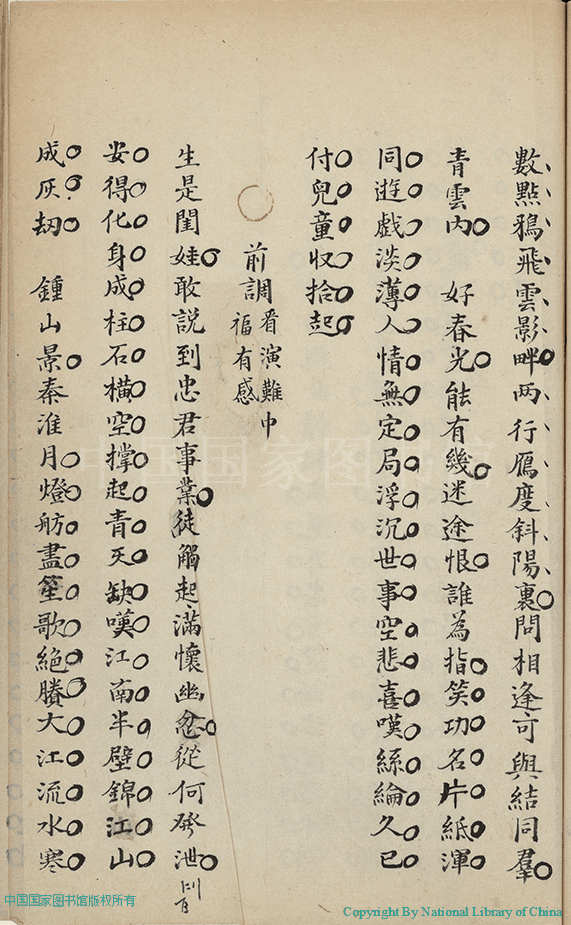 數㸃鴉飛雲影畔两行鴈度斜陽裏問相逢可與結同羣
青雲内　好春光能有幾迷途恨誰為指笑功名片紙渾
同遊戲淡薄人情無定局浮沉世事空悲喜嘆絲綸久已
付兒童収拾起
前調看演難中福有感
生是閨娃敢說到忠君事業徒觸起滿懷幽忿從何發泄
安得化身成柱石橫空撐起青天缺嘆江南半壁錦江山
成灰劫　鍾山景秦淮月燈舫盡笙歌絕賸大江流水寒
中国国家图书馆
中国国家图书馆版权所有
Copyright By National Library of China